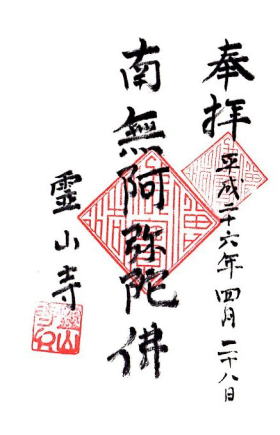 奉拝
平成二十六年四月二十八日
南無阿弥陀佛
靈山寺